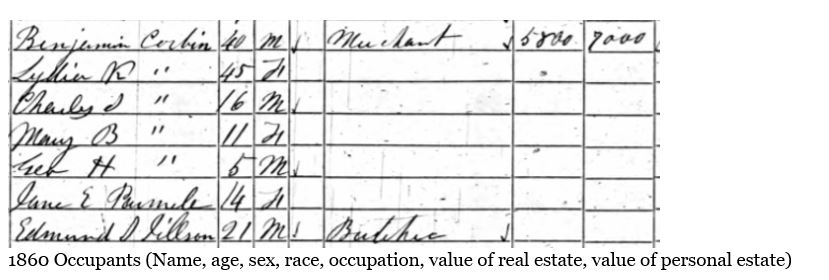 Benjamin Corbin 40 M Merchant 5800 7000
Lydia K " 45 F
Charles " 16 M
Mary B " 11 F
Geo H " 5 M
Jane E 14 F
Edmund 21 M Butcher
1860 Occupants (Name, age, sex, race, occupation, value of real estate, value of personal estate)